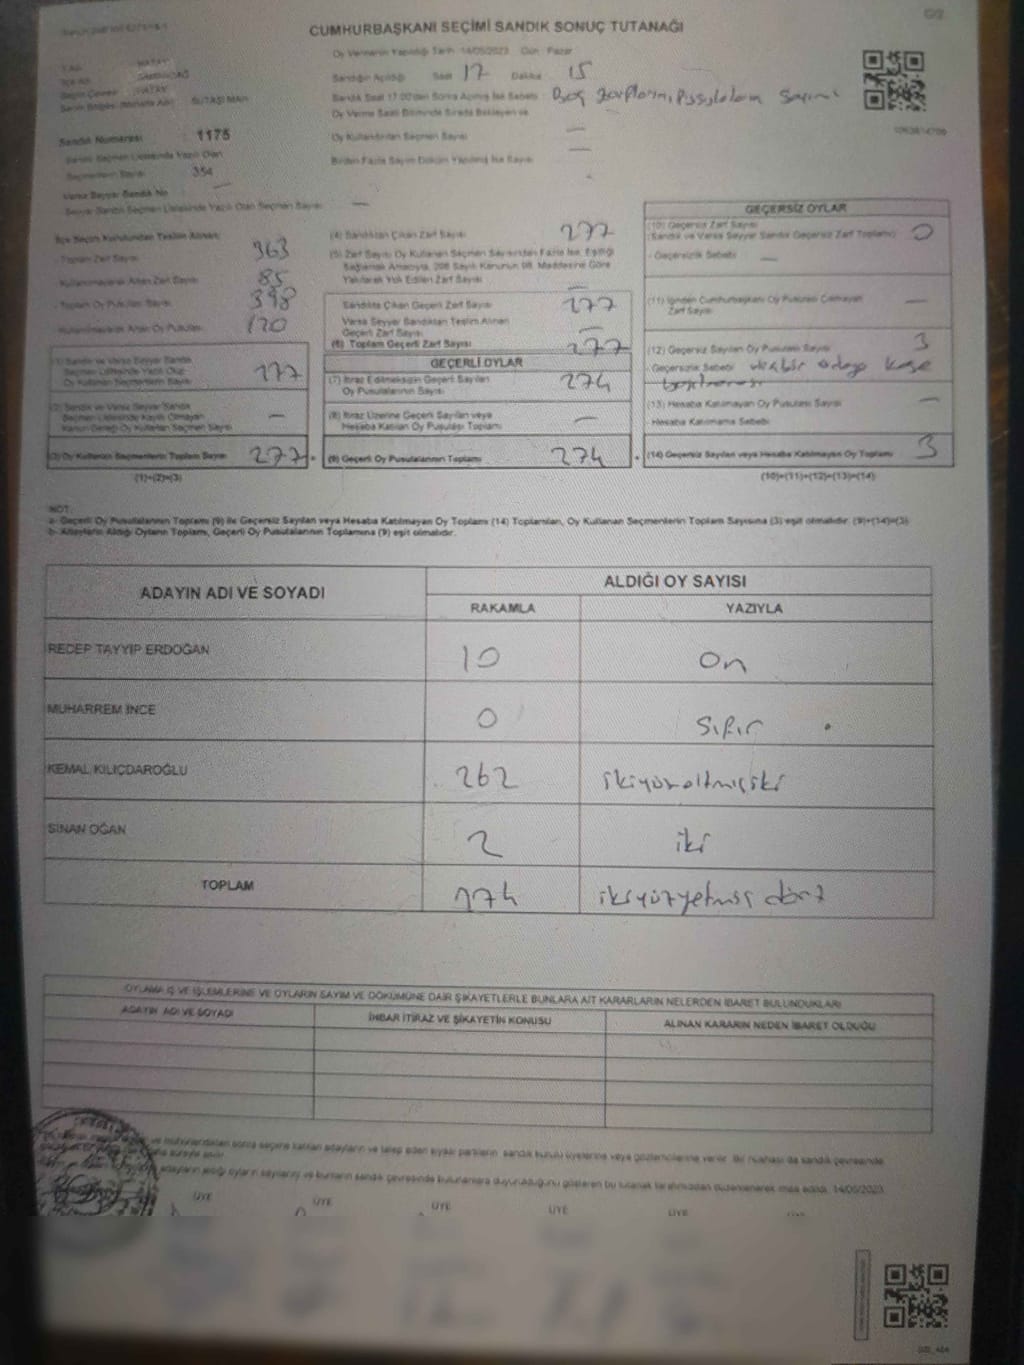 CUMHURBAŞKANI SEÇİMİ SANDIK SONUÇ TUTANAĞI
Oy Vermenin Yapıldığı Tarih : 14/05/2023 Gün : Pazar
Sandığın Açıldığı Saat 17 Dakika 15
HATAY
SAMANDAĞ
Seçim Çevresi HATAY
SUTAŞI MAH.
Sandık Saat 17.00'den Sonra Açılmış İse Sebebi : Boş zarfların, Pusulaların sayımı
Oy Verme Saati Bitiminde Sırada Bekleyen ve
Oy Kullandırılan Seçmen Sayısı —
Birden Fazla Sayım Döküm Yapılmış İse Sayısı —
Sandık Numarası : 1175
Sandık Seçmen Listesinde Yazılı Olan
Seçmenlerin Sayısı 354
Varsa Seyyar Sandık No —
Seyyar Sandık Seçmen Listesinde Yazılı Olan Seçmen Sayısı —
İlçe Seçim Kurulundan Teslim Alınan;
- Toplam Zarf Sayısı 363
- Kullanılmayarak Artan Zarf Sayısı 85
- Toplam Oy Pusulası Sayısı 398
- Kullanılmayarak Artan Oy Pusulası 120
(1) Sandık ve Varsa Seyyar Sandık
Seçmen Listesinde Yazılı Olup
Oy Kullanan Seçmenlerin Sayısı 277
(2) Sandık ve Varsa Seyyar Sandık
Seçmen Listesinde Kayıtlı Olmayan
Kanun Gereği Oy Kullanan Seçmen Sayısı —
(3) Oy Kullanan Seçmenlerin Toplam Sayısı 277
(1)+(2)=(3)
(4) Sandıktan Çıkan Zarf Sayısı 277
(5) Zarf Sayısı Oy Kullanan Seçmen Sayısından Fazla İse, Eşitliği
Sağlamak Amacıyla, 298 Sayılı Kanunun 98. Maddesine Göre
Yakılarak Yok Edilen Zarf Sayısı —
Sandıkta Çıkan Geçerli Zarf Sayısı 277
Varsa Seyyar Sandıktan Teslim Alınan
Geçerli Zarf Sayısı —
(6) Toplam Geçerli Zarf Sayısı 277
GEÇERLİ OYLAR
(7) İtiraz Edilmeksizin Geçerli Sayılan
Oy Pusulasının Sayısı 274
(8) İtiraz Üzerine Geçerli Sayılan veya
Hesaba Katılan Oy Pusulası Toplamı —
(9) Geçerli Oy Pusulalarının Toplamı 274
GEÇERSİZ OYLAR
(10) Geçersiz Zarf Sayısı
(Sandık ve Varsa Seyyar Sandık Geçersiz Zarf Toplamı) 0
- Geçersizlik Sebebi —
(11) İçinden Cumhurbaşkanı Oy Pusulası Çıkmayan
Zarf Sayısı —
(12) Geçersiz Sayılan Oy Pusulası Sayısı 3
- Geçersizlik Sebebi bir adaya kaşe
(13) Hesaba Katılmayan Oy Pusulası Sayısı —
- Hesaba Katılmama Sebebi
(14) Geçersiz Sayılan veya Hesaba Katılmayan Oy Toplamı 3
(10)+(11)+(12)+(13)=(14)
NOT:
a- Geçerli Oy Pusulalarının Toplamı (9) ile Geçersiz Sayılan veya Hesaba Katılmayan Oy Toplamı (14) Toplamları, Oy Kullanan Seçmenlerin Toplam Sayısına (3) eşit olmalıdır. (9)+(14)=(3)
b- Adayların Aldığı Oyların Toplamı, Geçerli Oy Pusulalarının Toplamına (9) eşit olmalıdır.
ADAYIN ADI VE SOYADI ALDIĞI OY SAYISI
RAKAMLA YAZIYLA
RECEP TAYYİP ERDOĞAN 10 on
MUHARREM İNCE 0 sıfır
KEMAL KILIÇDAROĞLU 262 ikiyüzaltmışiki
SİNAN OĞAN 2 iki
TOPLAM 274 ikiyüzyetmiş dört
OYLAMA İŞ VE İŞLEMLERİNE VE OYLARIN SAYIM VE DÖKÜMÜNE DAİR ŞİKAYETLERLE BUNLARA AİT KARARLARIN NELERDEN İBARET BULUNDUKLARI
ADAYIN ADI VE SOYADI İHBAR İTİRAZ VE ŞİKAYETİN KONUSU ALINAN KARARIN NEDEN İBARET OLDUĞU
ve mühürlendikten sonra seçime katılan adayların ve talep eden siyasi partilerin sandık kurulu üyelerine veya gözlemcilerine verilir. Bir nüshası da sandık çevresinde
adayların aldığı oyların sayılarını ve bunların sandık çevresinde bulunanlara duyurulduğunu gösteren bu tutanak tarafımızdan düzenlenerek imza edildi. 14/05/2023
ÜYE ÜYE ÜYE ÜYE ÜYE